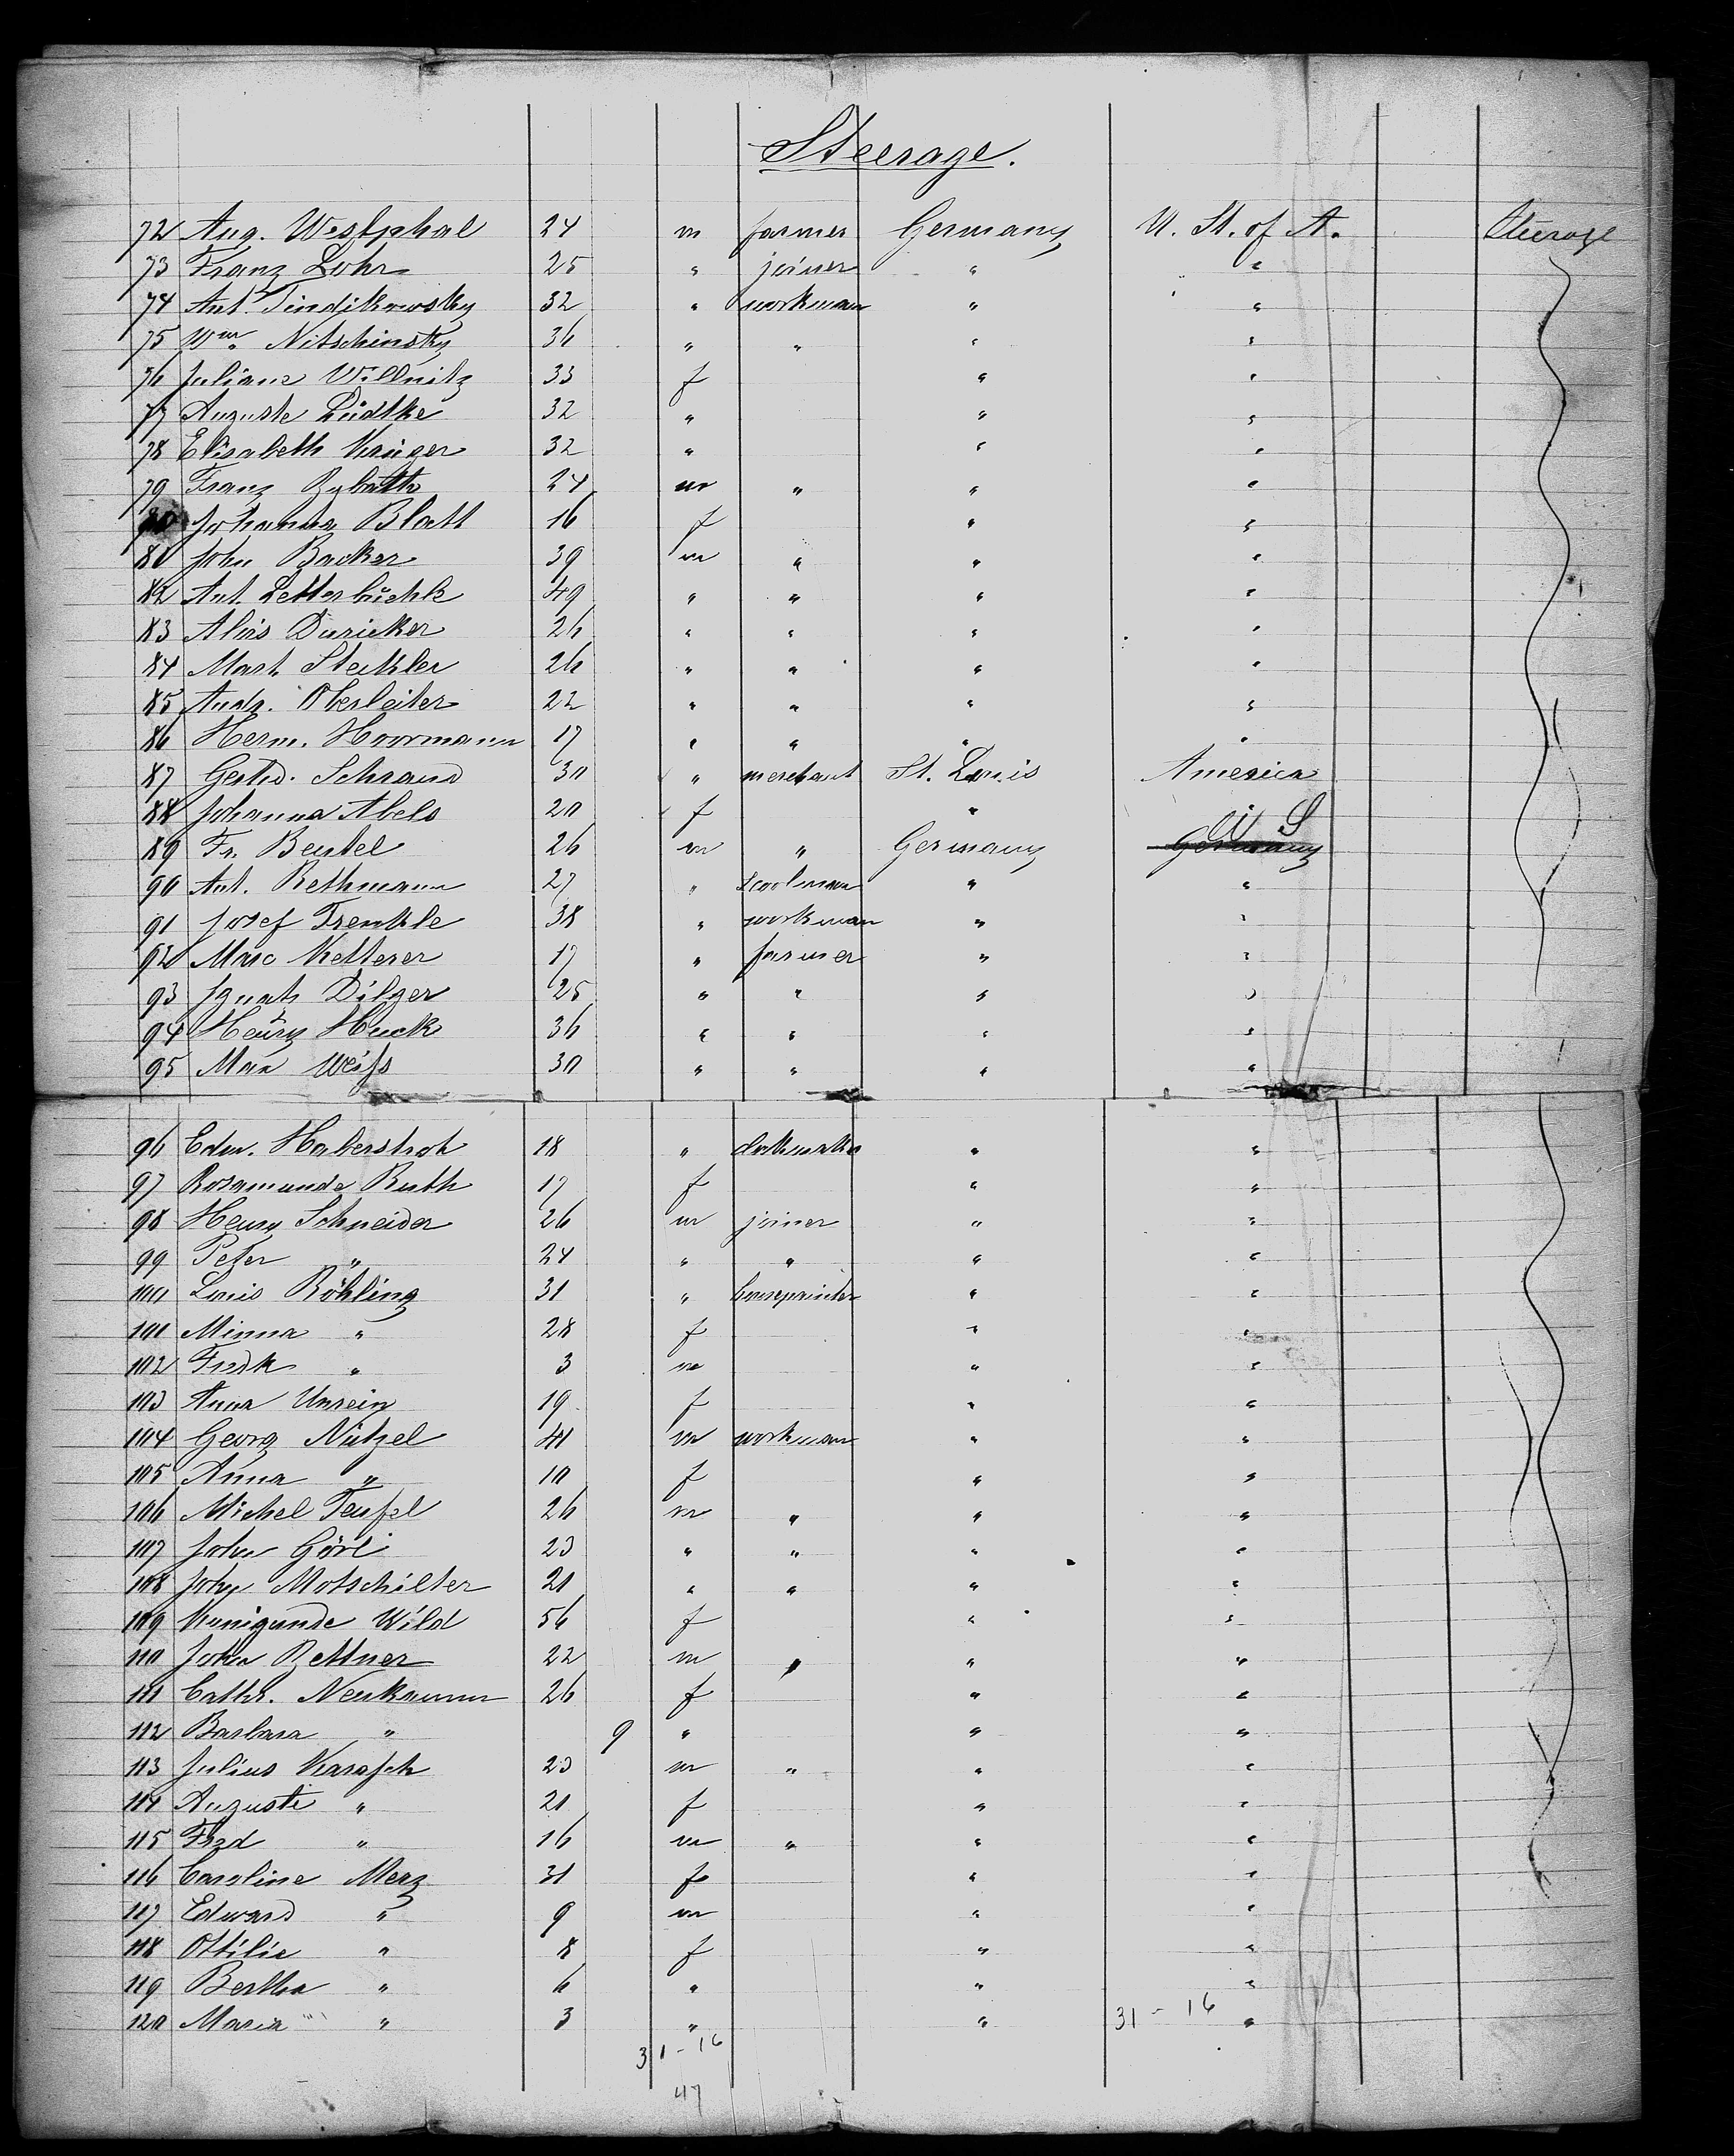 Steerage.
72 Aug. Westphal 24 m farmer Germany U. St. of A. Steerage
73 Franz Lohr 25 " joiner " "
74 Ant. Tindikowsky 32 " workman " "
75 Wm. Nitschinsky 36 " " " "
76 Juliane Willnitz 33 f " "
77 Auguste Lüdtke 32 " " "
78 Elisabeth Krüger 32 " " "
79 Franz 24 m " " "
80 Johanna Blatt 16 f " "
81 John Backer 39 m " " "
82 Ant. 49 " " " "
83 Alois 26 " " " "
84 Mart. Steckler 26 " " " "
85 Andr. Oberleiter 22 " " " "
86 Herm. Hoormann 17 " " " "
87 Gerhd. Schraud 30 " merchant St. Louis America
88 Johanna Abels 20 f "
89 Fr. Beutel 26 m " Germany Germany U S
90 Ant. Rethmann 27 " " "
91 Josef Trenkle 38 " workman " "
92 Marc Ketterer 17 " farmer " "
93 Ignatz Dilger 25 " " " "
94 Henry Huck 36 " " " "
95 Max Weiss 30 " " " "
96 Edm. Haberstroh 18 " " "
97 Rosamunde Ruth 17 f " "
98 Henry Schneider 26 m joiner " "
99 Peter " 24 " " " "
100 Louis Röhling 31 " " "
101 Minna " 28 f " "
102 Fredk " 3 m " "
103 Anna Unrein 19 f " "
104 Georg Nützel 41 m workman " "
105 Anna " 10 f " "
106 Michel Teufel 26 m " " "
107 John Görl 23 " " " "
108 John Motschilter 21 " " " "
109 Kunigunde Wild 56 f " "
110 John Zettner 22 m " " "
111 Cathr. Neukamm 26 f " "
112 Barbara " 9 " " "
113 Julius Karasch 23 m " " "
114 Auguste " 21 f " "
115 Fred " 16 m " " "
116 Caroline Merz 31 f " "
117 Edward " 9 m " "
118 Ottilie " 8 f " "
119 Bertha " 6 " " "
120 Maria " 3 " " 31 - 16 "
31 - 16
47